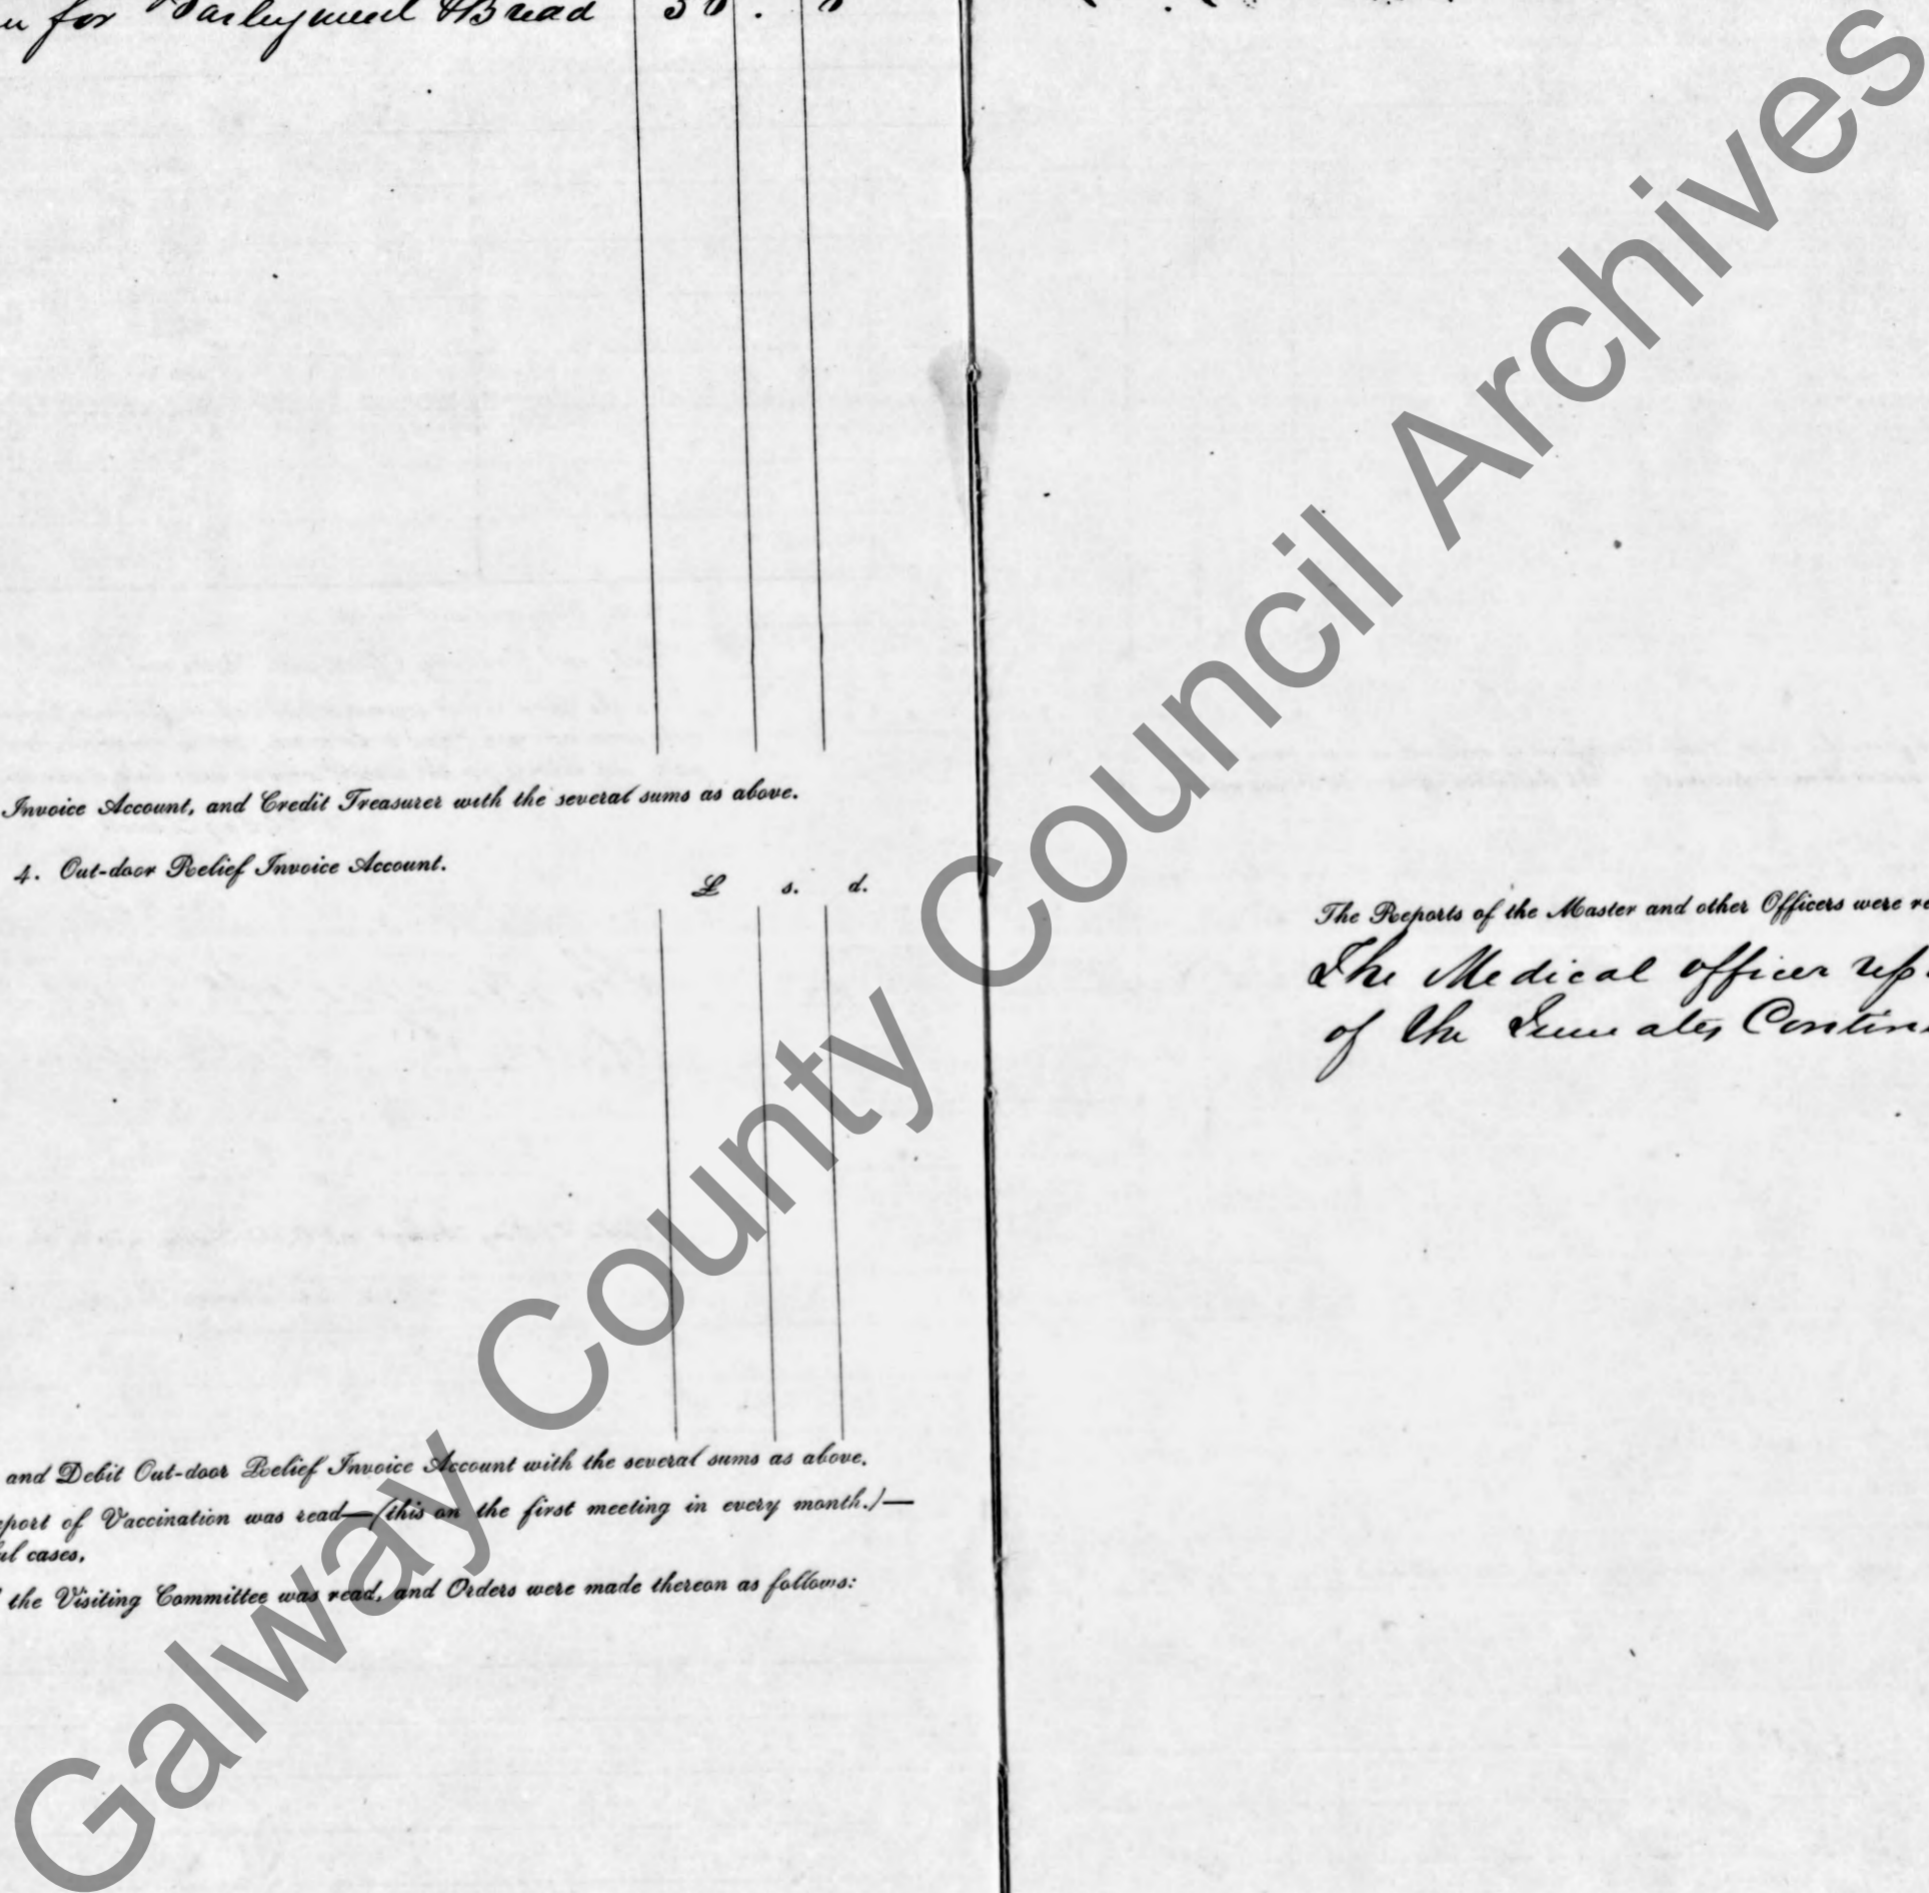 for Barleymeal & Bread
Invoice Account, and Credit Treasurer with the several sums as above.
4. Out-door Relief Invoice Account.
£ s. d.
and Debit Out-door Relief Invoice Account with the several sums as above.
eport of Vaccination was read—(this on the first meeting in every month.)—
ul cases.
the Visiting Committee was read, and Orders were made thereon as follows:
The Reports of the Master and other Officers were re
The Medical Officer rep
of the Inmates Contin
Galway County Council Archives